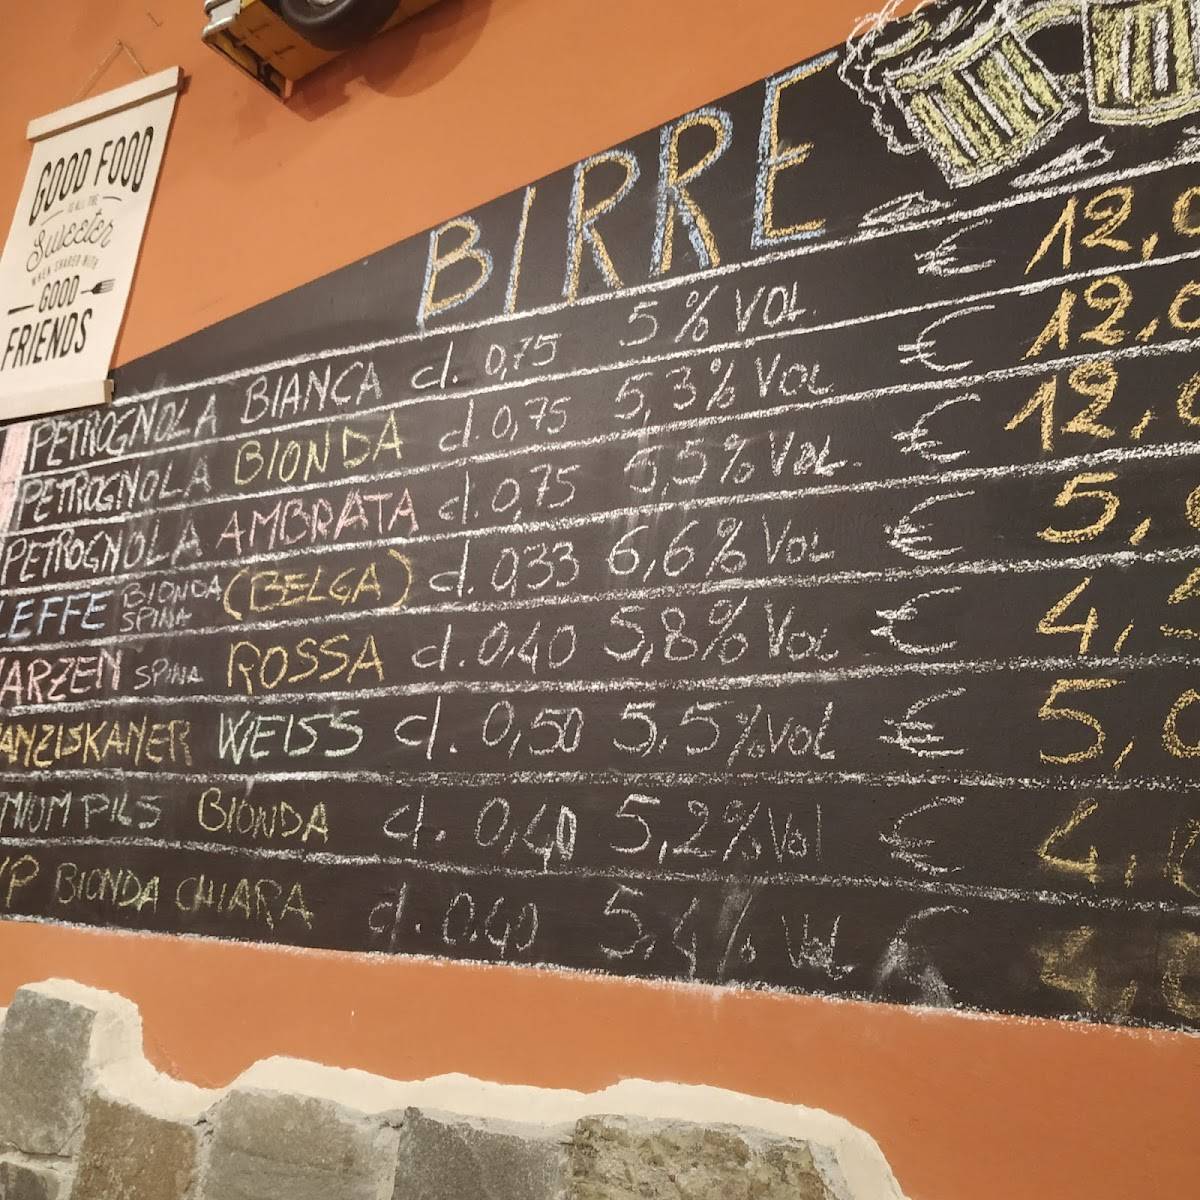 GOOD FOOD
IS ALL THE
Sweeter
WHEN SHARED WITH
GOOD
FRIENDS
BIRRE
PETROGNOLA BIANCA cl. 0,75 5% VOL. € 12,0
PETROGNOLA BIONDA cl. 0,75 5,3% VOL € 12,0
PETROGNOLA AMBRATA cl. 0,75 5,5% VOL. € 12,0
LEFFE BIONDA SPINA (BELGA) cl. 0,33 6,6% VOL € 5,
ARZEN SPINA ROSSA cl. 0,40 5,8% VOL € 4,
ANZISKANER WEISS cl. 0,50 5,5% VOL € 5,0
MIUM PILS BIONDA cl. 0,40 5,2% Vol € 4,
P BIONDA CHIARA cl. 0,40 5,4% Vol €